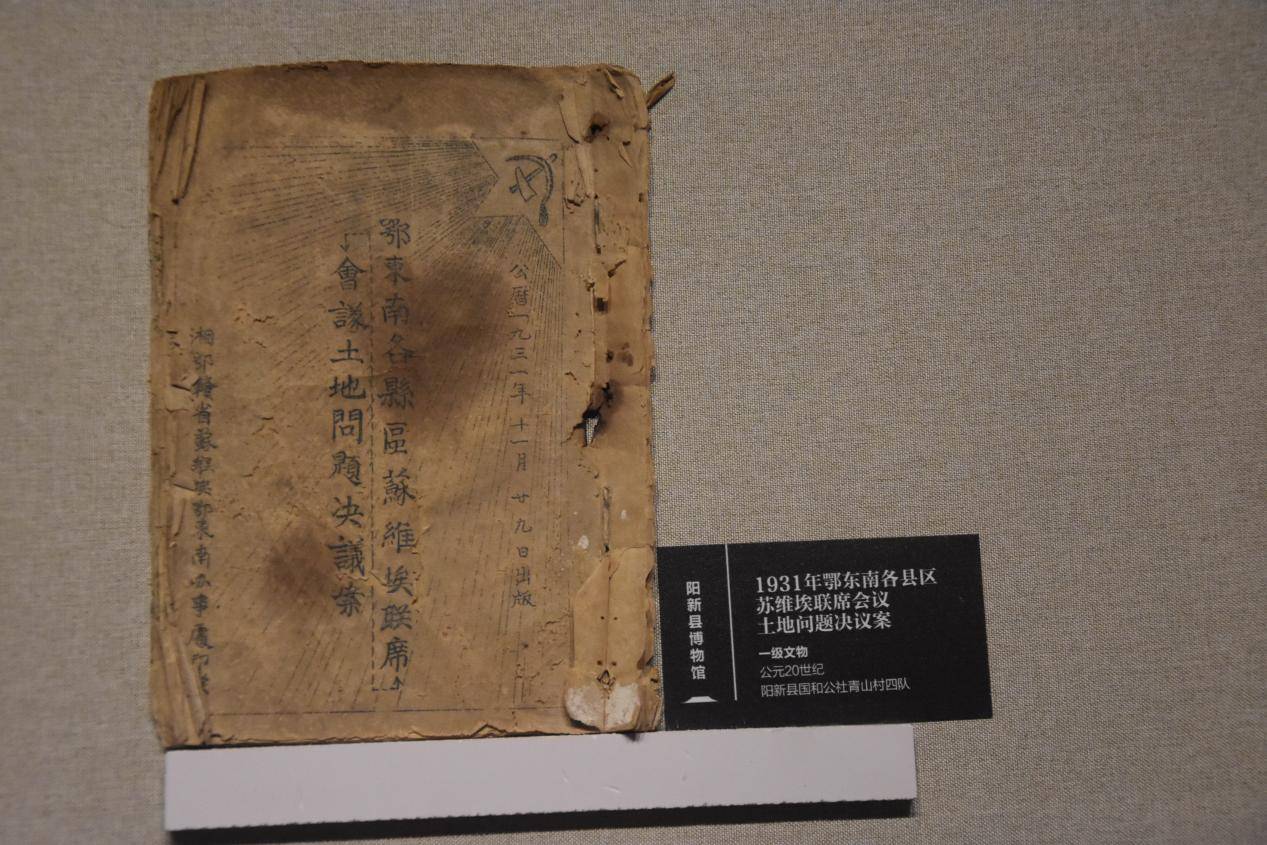 公曆一九三一年十一月廿九日出版
鄂東南各縣區蘇維埃联席
會議土地問題決議案
湘鄂贛省蘇維埃鄂東南办事處印
阳新县博物馆
1931年鄂东南各县区
苏维埃联席会议
土地问题决议案
一级文物
公元20世纪
阳新县国和公社青山村四队